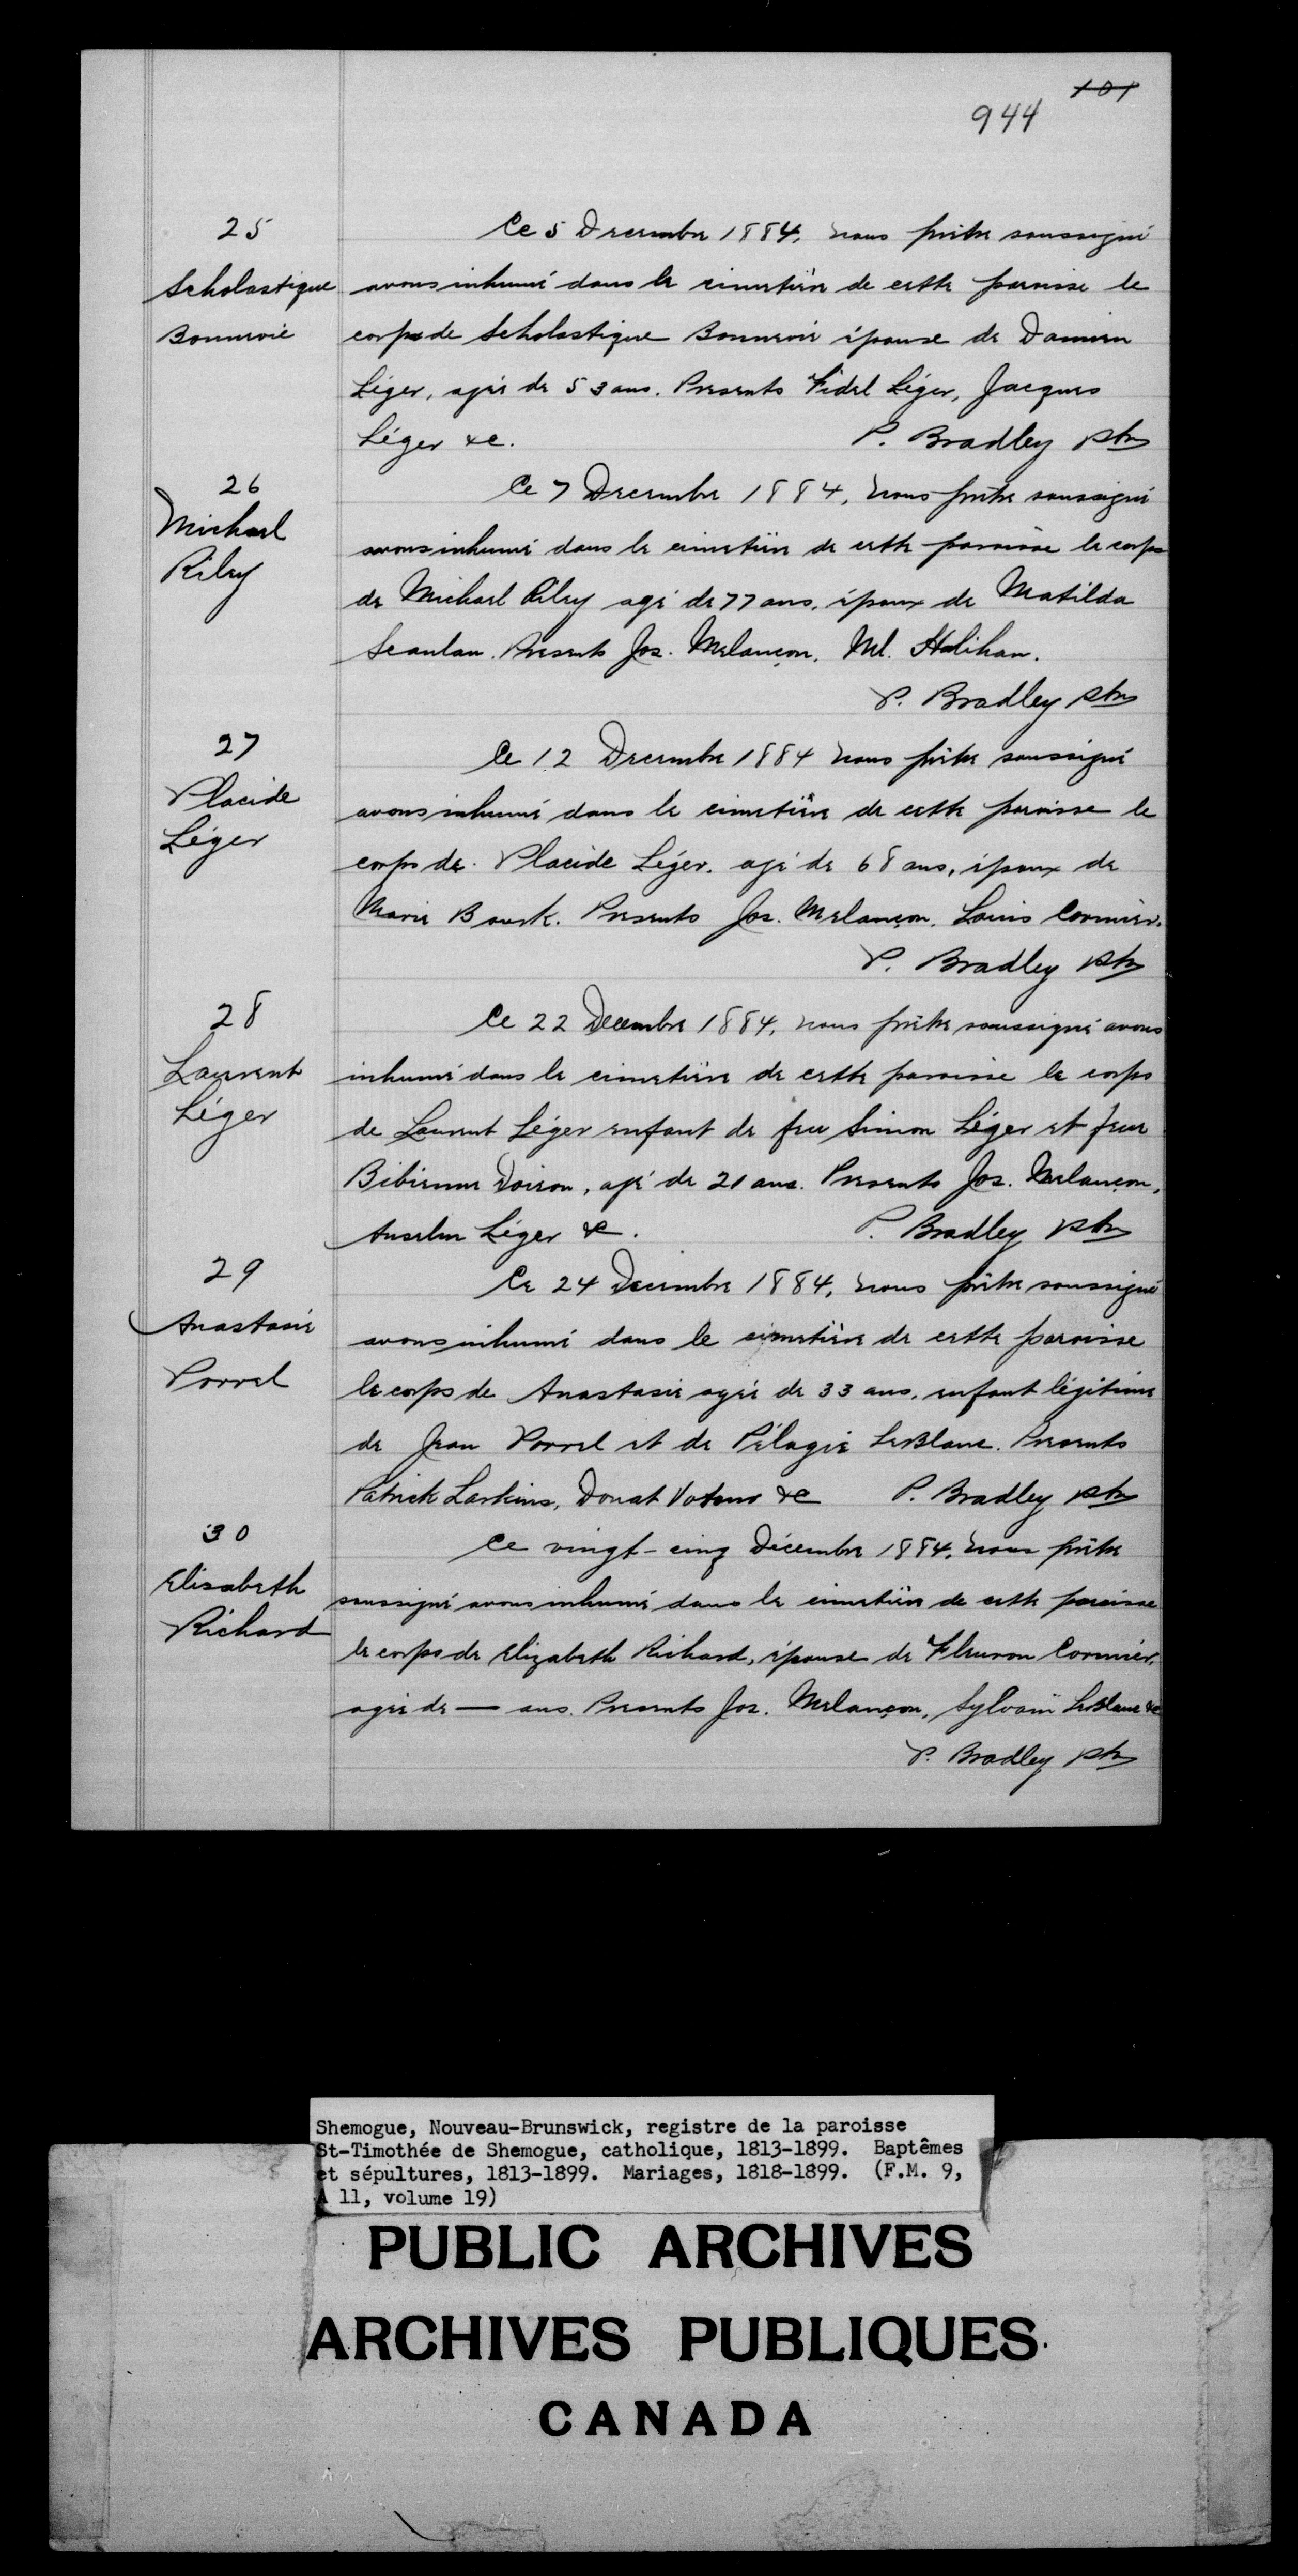 101
944
25
Scholastique
Bonnevie
Ce 5 Decembre 1884, nous prêtre soussigné
avons inhumé dans le cimetière de cette paroisse le
corps de Scholastique Bonnevie épouse de Damien
Léger, agée de 53 ans. Presents Fidel Léger, Jacques
Léger &c. P. Bradley ptre
26
Michael
Riley
Ce 7 Decembre 1884, nous prêtre soussigné
avons inhumé dans le cimetière de cette paroisse le corps
de Michael Riley agé de 77 ans, époux de Matilda
Scanlan. Presents Jos. Melançon, Ml. Holihan.
P. Bradley ptre
27
Placide
Léger
Ce 12 Decembre 1884 nous prêtre soussigné
avons inhumé dans le cimetière de cette paroisse le
corps de Placide Léger, agé de 68 ans, époux de
Marie Bourk. Presents Jos. Melançon, Louis Cormier.
P. Bradley ptre
28
Laurent
Léger
Ce 22 Decembre 1884, nous prêtre soussigné avons
inhumé dans le cimetière de cette paroisse le corps
de Laurent Léger enfant de feu Simon Léger et feue
Bibienne Doiron, agé de 21 ans. Presents Jos. Melançon,
Anselm Léger &c. P. Bradley ptre
29
Anastasie
Porrel
Ce 24 Decembre 1884, nous prêtre soussigné
avons inhumé dans le cimetière de cette paroisse
le corps de Anastasie agée de 33 ans, enfant légitime
de Jean Porrel et de Pélagie LeBlanc. Presents
Patrick Larkins, Donat &c P. Bradley ptre
30
Elisabeth
Richard
Ce vingt-cinq Décembre 1884, nous prêtre
soussigné avons inhumé dans le cimetière de cette paroisse
le corps de Elizabeth Richard, épouse de Fleuron Cormier,
agée de — ans. Presents Jos. Melançon, Sylvain LeBlanc &c
P. Bradley ptre
Shemogue, Nouveau-Brunswick, registre de la paroisse
St-Timothée de Shemogue, catholique, 1813-1899. Baptêmes
et sépultures, 1813-1899. Mariages, 1818-1899. (F.M. 9,
A 11, volume 19)
PUBLIC ARCHIVES
ARCHIVES PUBLIQUES
CANADA